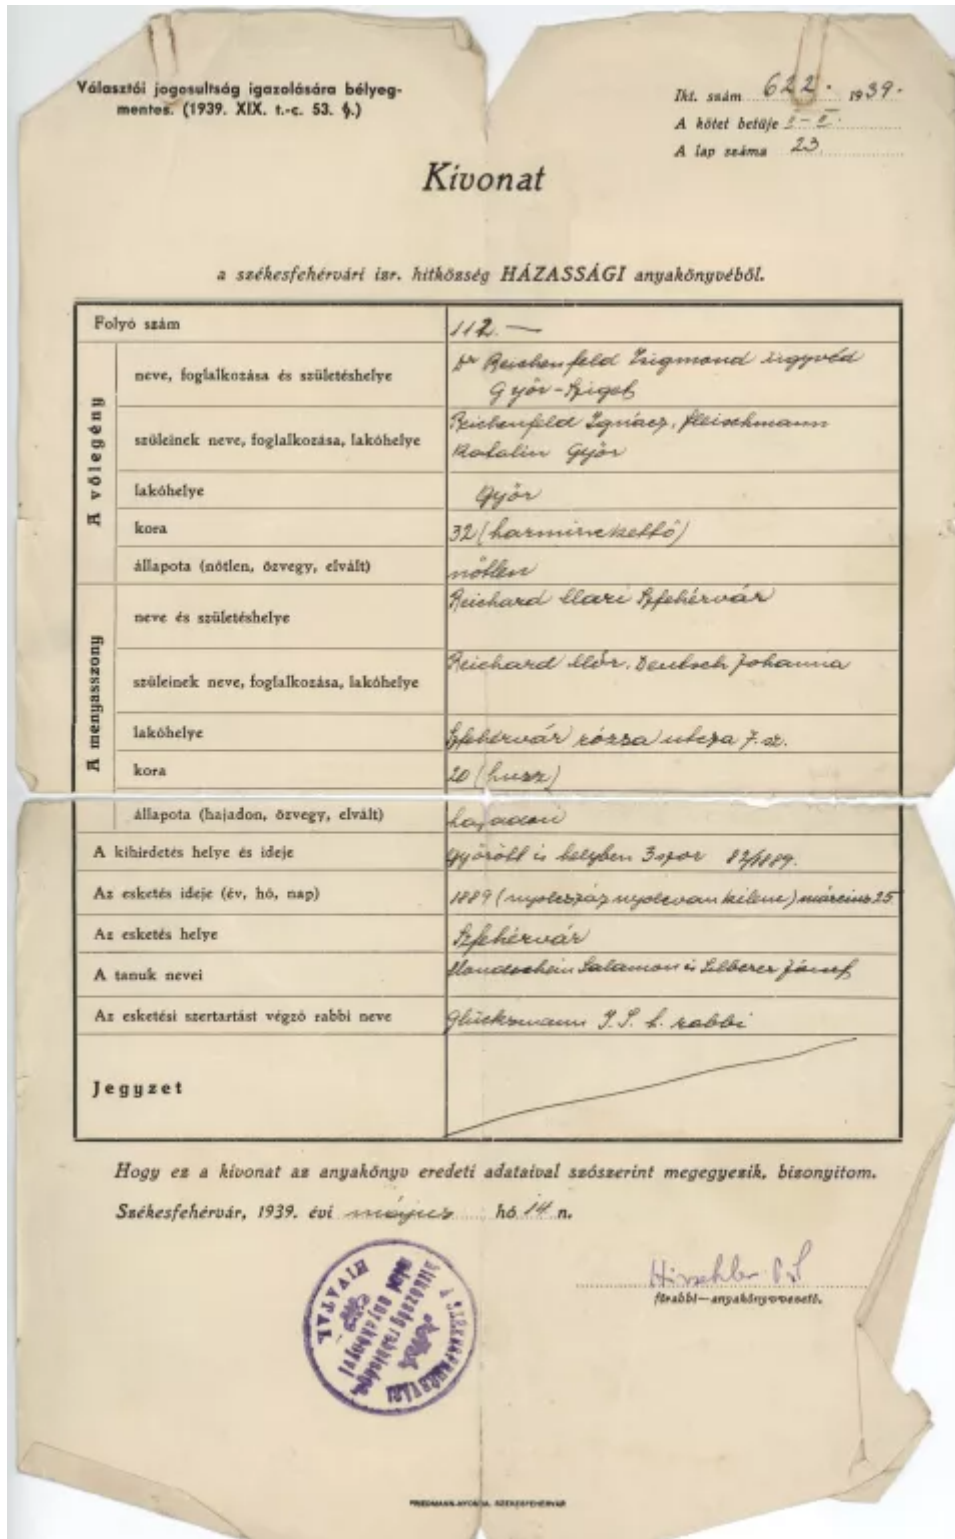 Választói jogosultság igazolására bélyeg-
mentes. (1939. XIX. t.-c. 53. §.)
Ikt. szám 622. 1939.
A kötet betűje I-II.
A lap száma 23
Kivonat
a székesfehérvári izr. hitközség HÁZASSÁGI anyakönyvéből.
Folyó szám 112.—
A vőlegény
neve, foglalkozása és születéshelye Dr Reichenfeld Zsigmond ügyvéd
Győr-Sziget
szüleinek neve, foglalkozása, lakóhelye Reichenfeld Ignácz, Fleischmann
Katalin Győr
lakóhelye Győr
kora 32 (harminckettő)
állapota (nőtlen, özvegy, elvált) nőtlen
A menyasszony
neve és születéshelye Reichard Mari Szfehérvár
szüleinek neve, foglalkozása, lakóhelye Reichard Mór, Deutsch Johanna
lakóhelye Szfehérvár rózsa utcza 7. sz.
kora 20 (husz)
állapota (hajadon, özvegy, elvált) hajadon
A kihirdetés helye és ideje Győrött is helyben 3szor 82/1889.
Az esketés ideje (év, hó, nap) 1889 (nyolcszáz nyolcvankilenc) március 25
Az esketés helye Szfehérvár
A tanuk nevei Mondschein Salamon és Silberer József
Az esketési szertartást végző rabbi neve Glücksmann rabbi
Jegyzet
Hogy ez a kivonat az anyakönyv eredeti adataival szószerint megegyezik, bizonyitom.
Székesfehérvár, 1939. évi május hó 14 n.
Hirschler
főrabbi—anyakönyvvezető.
A SZÉKESFEHÉRVÁRI
anyakönyvi
HIVATAL
FRIEDMANN-NYOMDA, SZÉKESFEHÉRVÁR